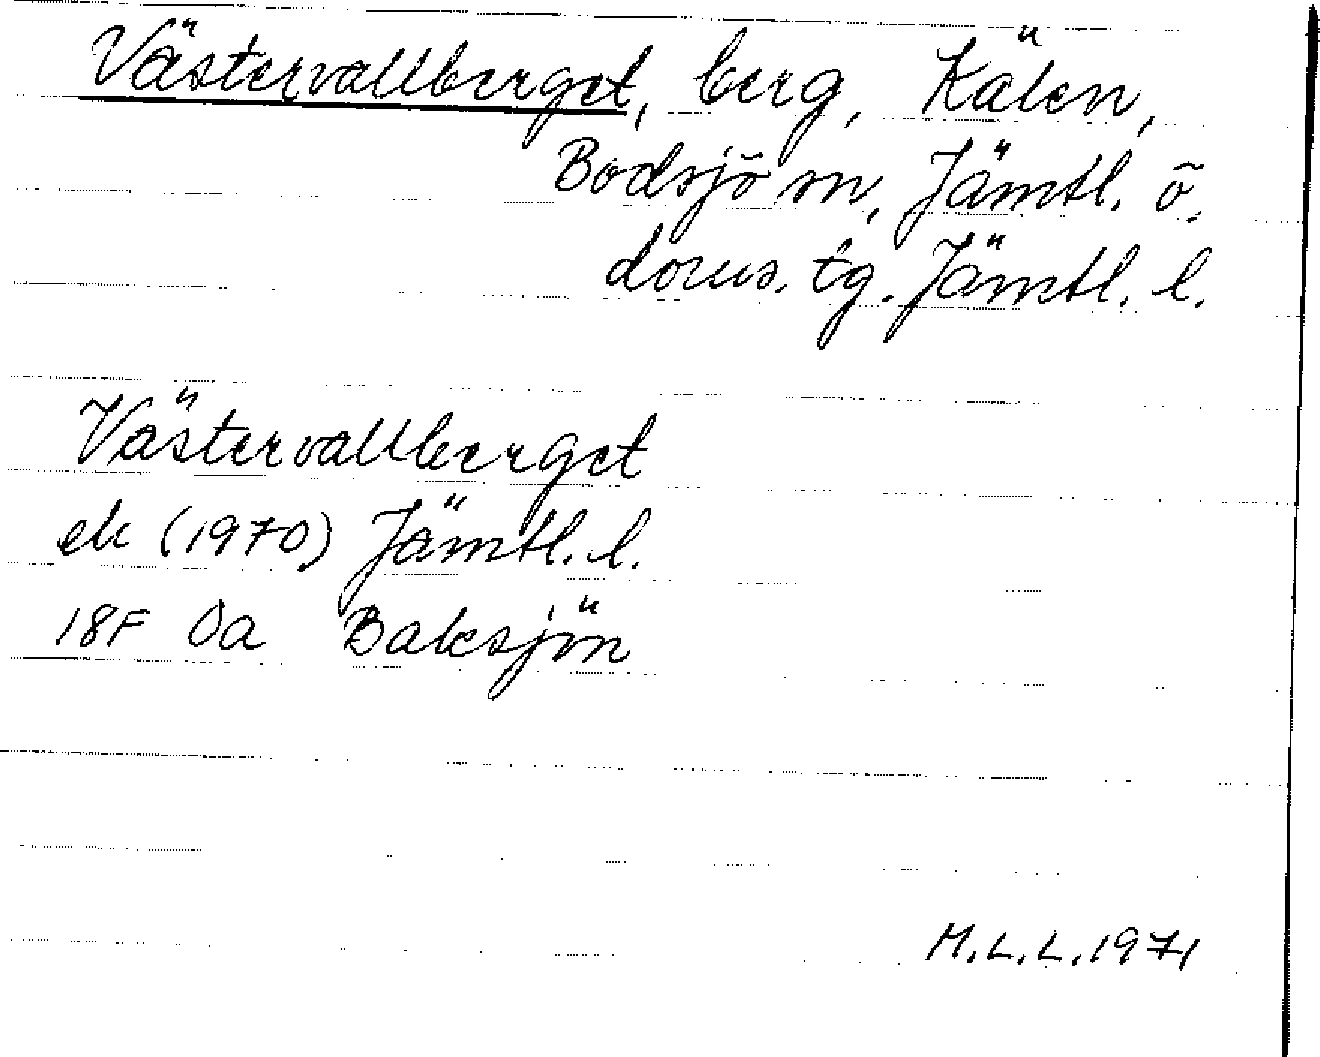 Västervallberget, berg, Kälen,
Bodsjö sn, Jämtl. ö.
doms. tg. Jämtl. l.
Västervallberget
ek (1970) Jämtl. l.
18F 0a Baksjön
M.L.L. 1971